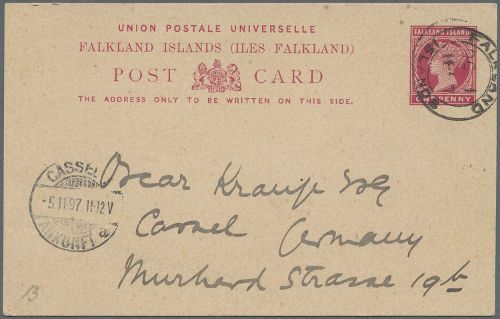 UNION POSTALE UNIVERSELLE
FALKLAND ISLANDS (ILES FALKLAND)
POST CARD
THE ADDRESS ONLY TO BE WRITTEN ON THIS SIDE.
FALKLAND ISLANDS
ONE PENNY
FALKLAND
CASSEL
-5.11.97 11-12V
ANKUNFT
Oscar Krause Esq
Cassel Germany
Murhard Strasse 19b
13